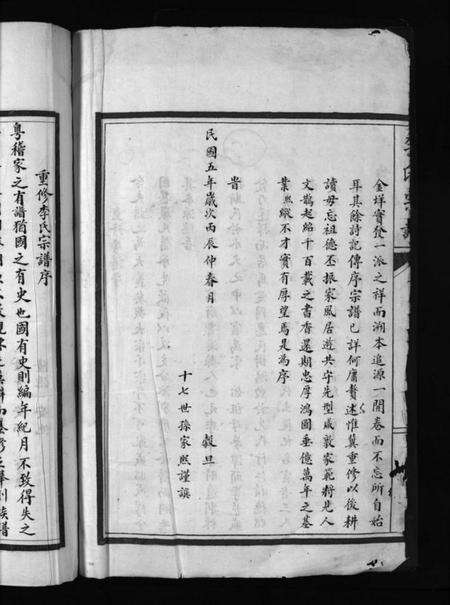 金垟實發一派之祥而溯本追源一開卷而不忘所自始
耳其餘詩記傳序宗譜已詳何庸贅述惟冀重修以後耕
讀毋忘祖德丕振家風居遊共守先型咸敦家範將見人
文鵲起紹千百載之書香還期忠厚鴻圖垂億萬年之基
業熙縱不才實有厚望焉是為序
旹
民國五年歲次丙辰仲春月 穀旦
十七世孫家熙謹譔
重修李氏宗譜序
粵稽家之有譜猶國之有史也國有史則編年紀月不致得失之